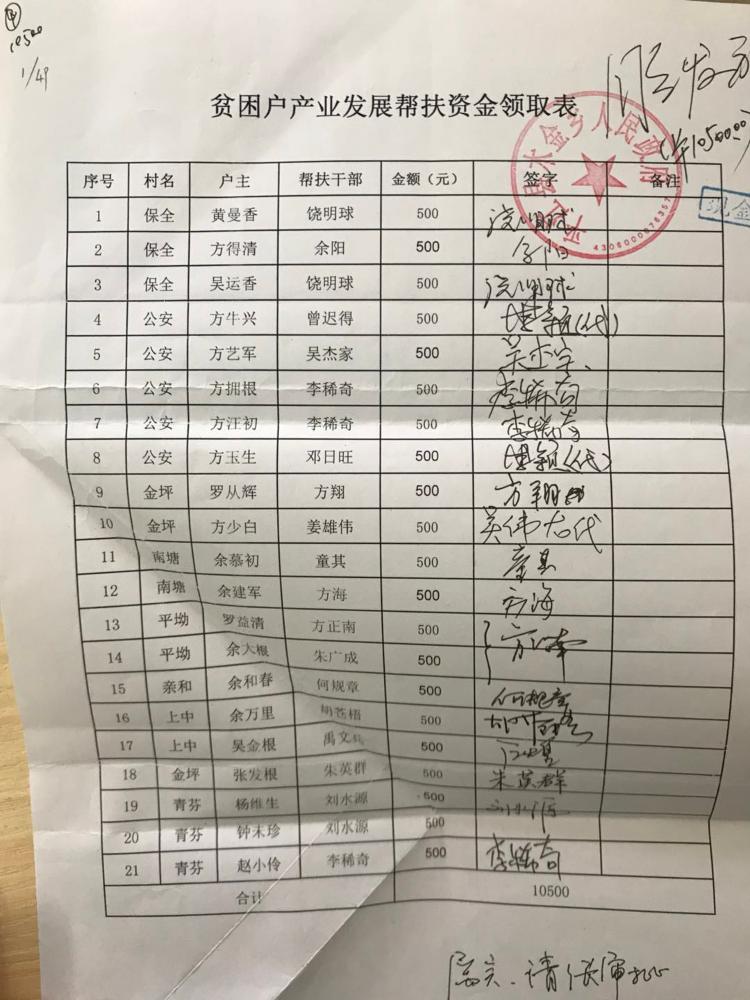 10500
1/49
贫困户产业发展帮扶资金领取表
(¥10500.00)
现金
4306000076357
序号 村名 户主 帮扶干部 金额（元） 签字 备注
1 保全 黄曼香 饶明球 500 饶明球
2 保全 方得清 余阳 500 余阳
3 保全 吴运香 饶明球 500 饶明球
4 公安 方牛兴 曾迟得 500 (代)
5 公安 方艺军 吴杰家 500
6 公安 方拥根 李稀奇 500 李稀奇
7 公安 方汪初 李稀奇 500 李稀奇
8 公安 方玉生 邓日旺 500 (代)
9 金坪 罗从辉 方翔 500 方翔
10 金坪 方少白 姜雄伟 500 代
11 南塘 余慕初 童其 500 童其
12 南塘 余建军 方海 500 方海
13 平坳 罗益清 方正南 500 方正南
14 平坳 余大根 朱广成 500
15 亲和 余和春 何规章 500 何规章
16 上中 余万里 胡苍梧 500
17 上中 吴金根 禹文 500
18 金坪 张发根 朱英群 500 朱英群
19 青芬 杨维生 刘水源 500 刘水源
20 青芬 钟未珍 刘水源 500
21 青芬 赵小伶 李稀奇 500 李稀奇
合计 10500